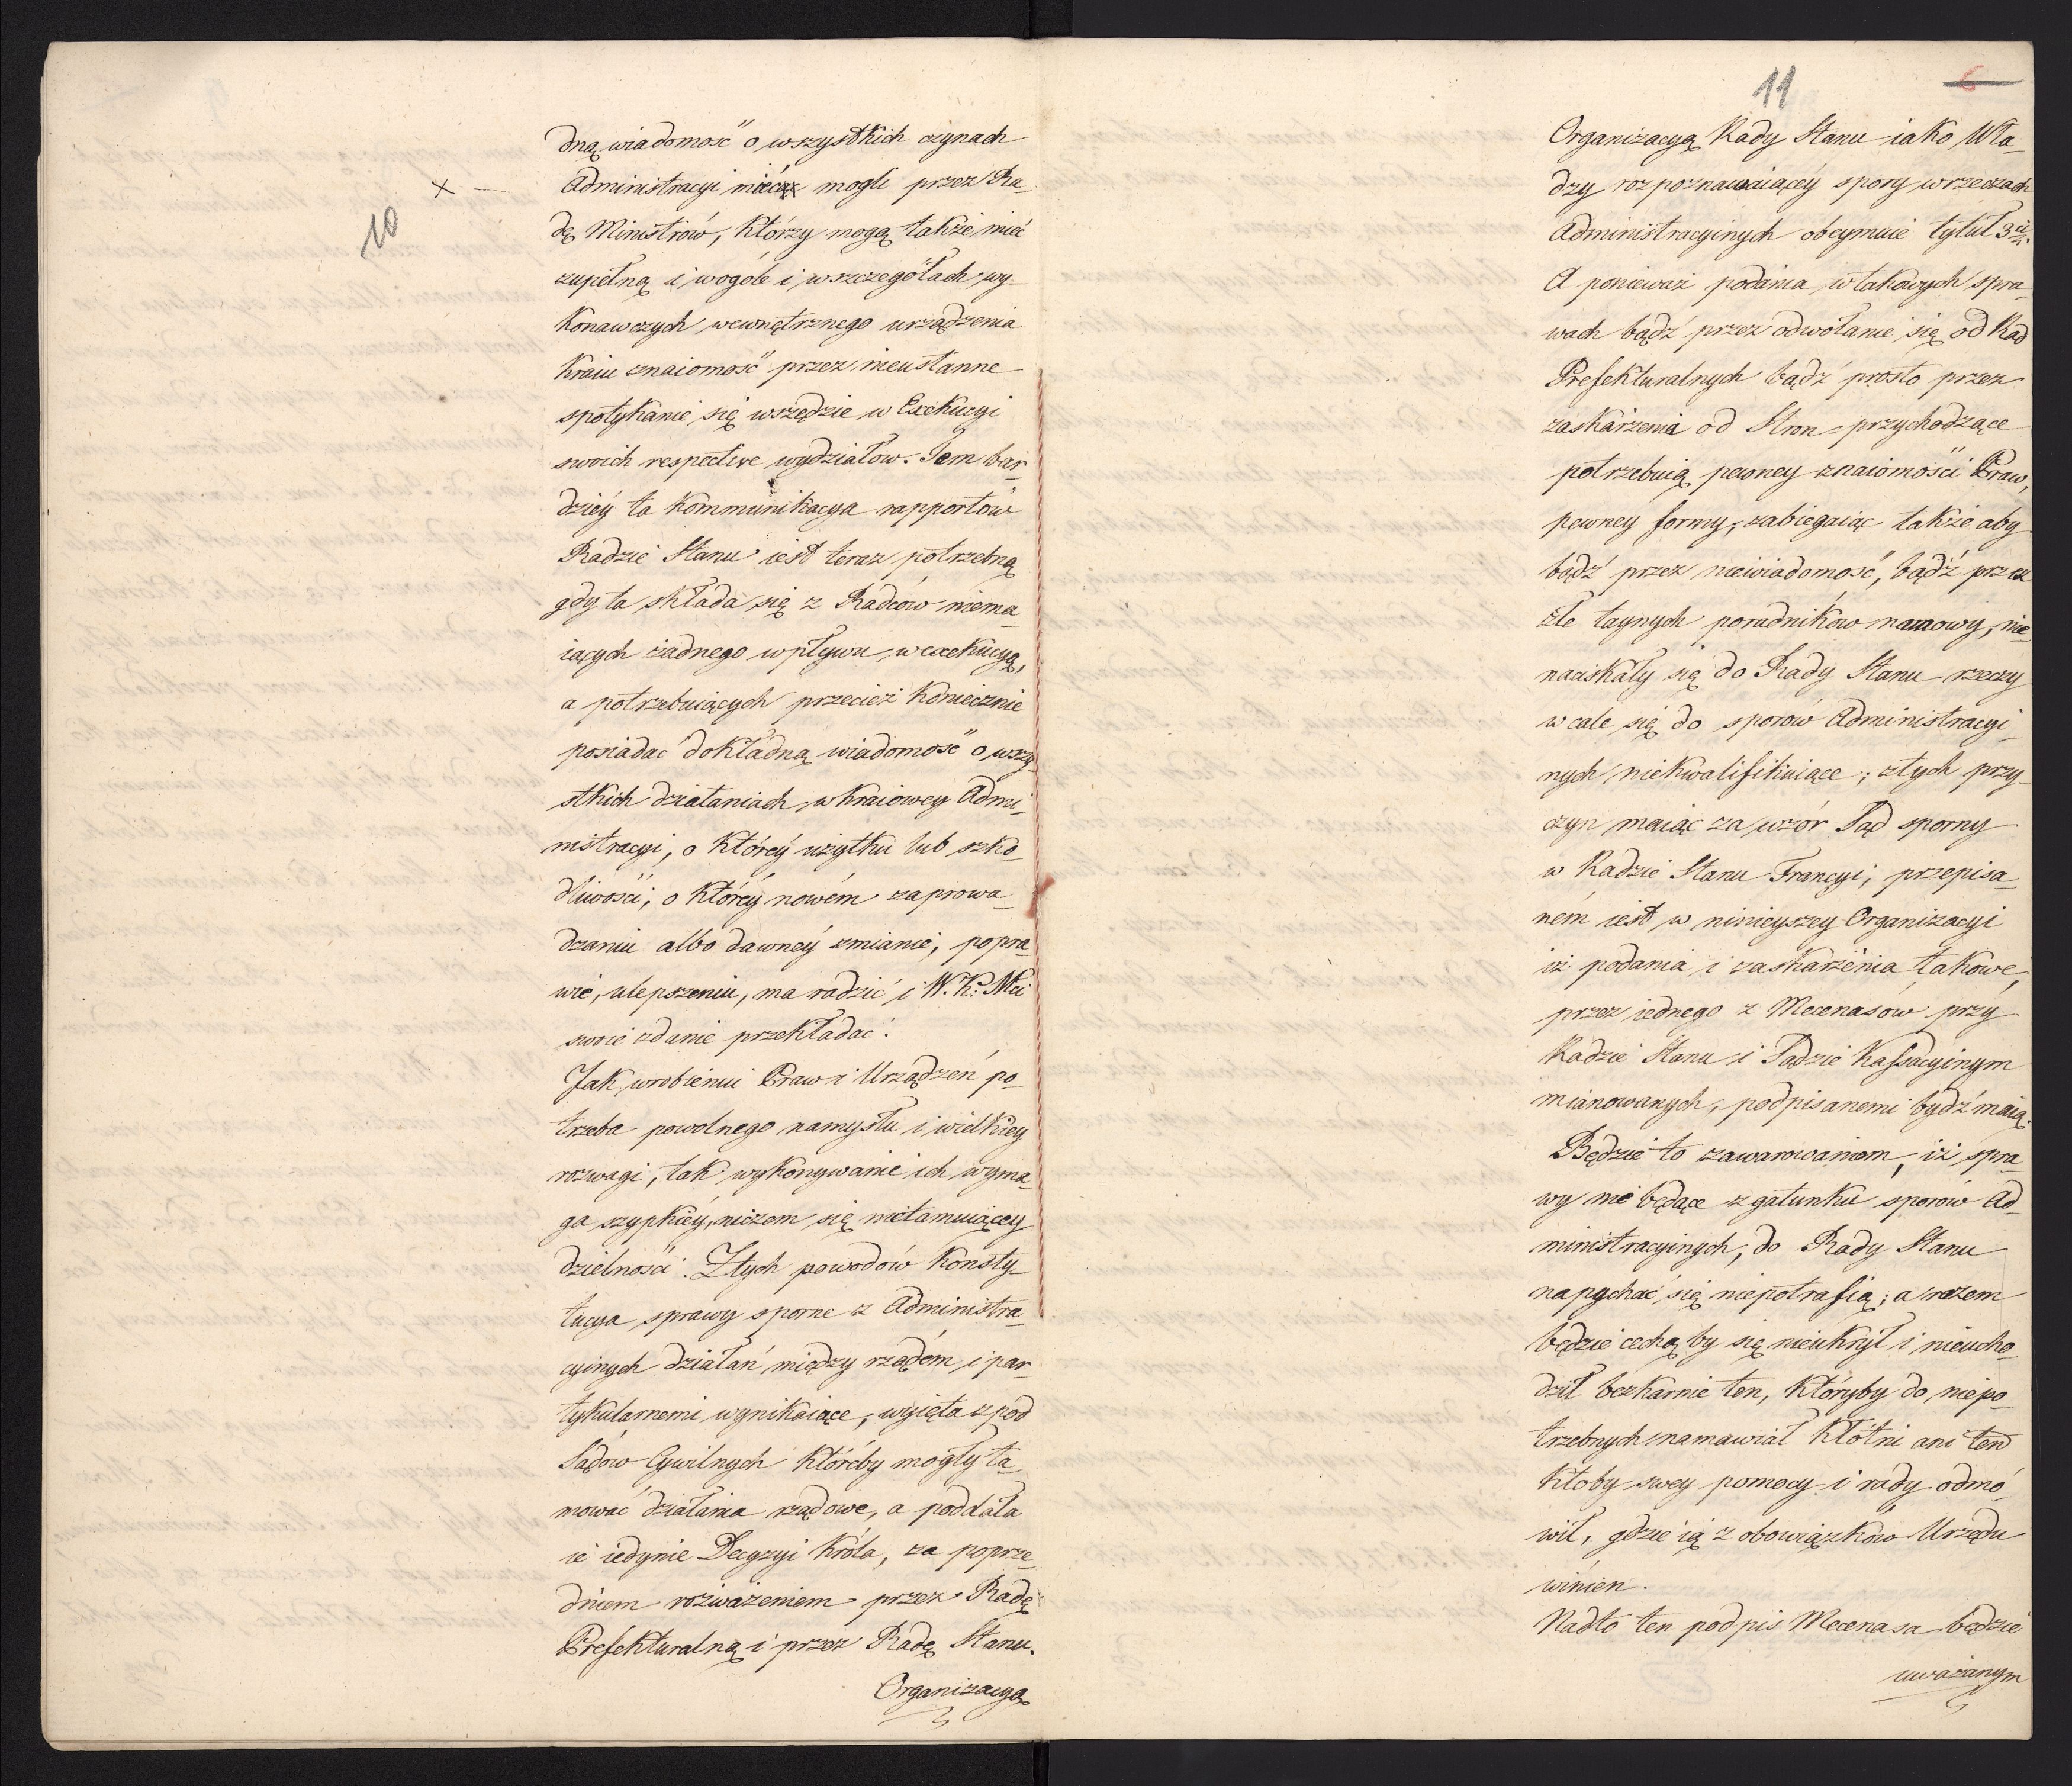 10
×
dną wiadomość o wszystkich czynach
Administracyi mieć mogli przez Ra-
dę Ministrów, którzy mogą także mieć
zupełną i wogóle i wszczegółach wy-
konawczych wewnętrznego urządzenia
Kraiu znaiomość przez nieustanne
spotykanie się wszędzie w Exekucyi
swoich respective wydziałow. Tem bar-
dziéy ta kommunikacya rapportów
Radzie Stanu iest teraz potrzebną
gdy ta składa się z Radców niema-
iących żadnego wpływu w exekucyą,
a potrzebuiących przecież koniecznie
posiadac dokładną wiadomość o wszy-
stkich działaniach w kraiowey Admi-
nistracyi, o któréy użytku lub szko-
dliwości, o któréy nowém zaprowa-
dzaniu albo dawnéy zmianie, popra-
wie, ulepszeniu, ma radzić i W. K. Mci
swoie zdanie przekładać.
Jak wrobieniu Praw i Urządzeń po-
trzeba powolnego namysłu i wielkiey
rozwagi, tak wykonywanie ich wyma-
ga szypkiéy, niczem się nietamuiącey
dzielności. Ztych powodów Konsty-
tucya sprawy sporne z Administra-
cyinych działań między rządem i par-
tykularnemi wynikaiące, wyięła zpod
Sądów Cywilnych któréby mogły ta-
mować działania rządowe, a poddała
ie iedynie Decyzyi Króla, za poprze-
dniem rozważeniem przez Radę
Prefekturalną i przez Radę Stanu.
Organizacyą
11
6
Organizacyą Rady Stanu iako Wła-
dzy rozpoznawaiącéy spory wrzeczach
Administracyinych obeymuie tytuł 3ci.
A ponieważ podania wtakowych spra-
wach bądź przez odwołanie się od Rad
Prefekturalnych bądź prosto przez
zaskarżenia od Stron przychodzące
potrzebuią pewney znaiomości Praw,
pewney formy, zabiegaiąc także aby
bądź przez niewiadomość, bądź przez
złe taynych poradników namowy, nie
naciskały się do Rady Stanu rzeczy
wcale się do sporów Administracyi-
nych niekwalifikuiące; ztych przy-
czyn maiąc za wzór Sąd sporny
w Radzie Stanu Francyi, przepisa-
ném iest w ninieyszey Organizacyi
iż podania i zaskarżenia takowe,
przez iednego z Mecenasow przy
Radzie Stanu i Sądzie Kassacyinym
mianowanych, podpisanemi bydź maią.
Będzie to zawarowaniem, iż spra-
wy nie będące zgatunku sporów Ad-
ministracyinych, do Rady Stanu
napychać się niepotrafią; a razem
będzie cechą by się nieukrył i nieucho-
dził bezkarnie ten, któryby do niepo-
trzebnych namawiał kłótni ani ten
ktoby swey pomocy i rady odmó-
wił, gdzie ią z obowiązków Urzędu
winien.
Nadto ten podpis Mecenasa będzie
uważanym